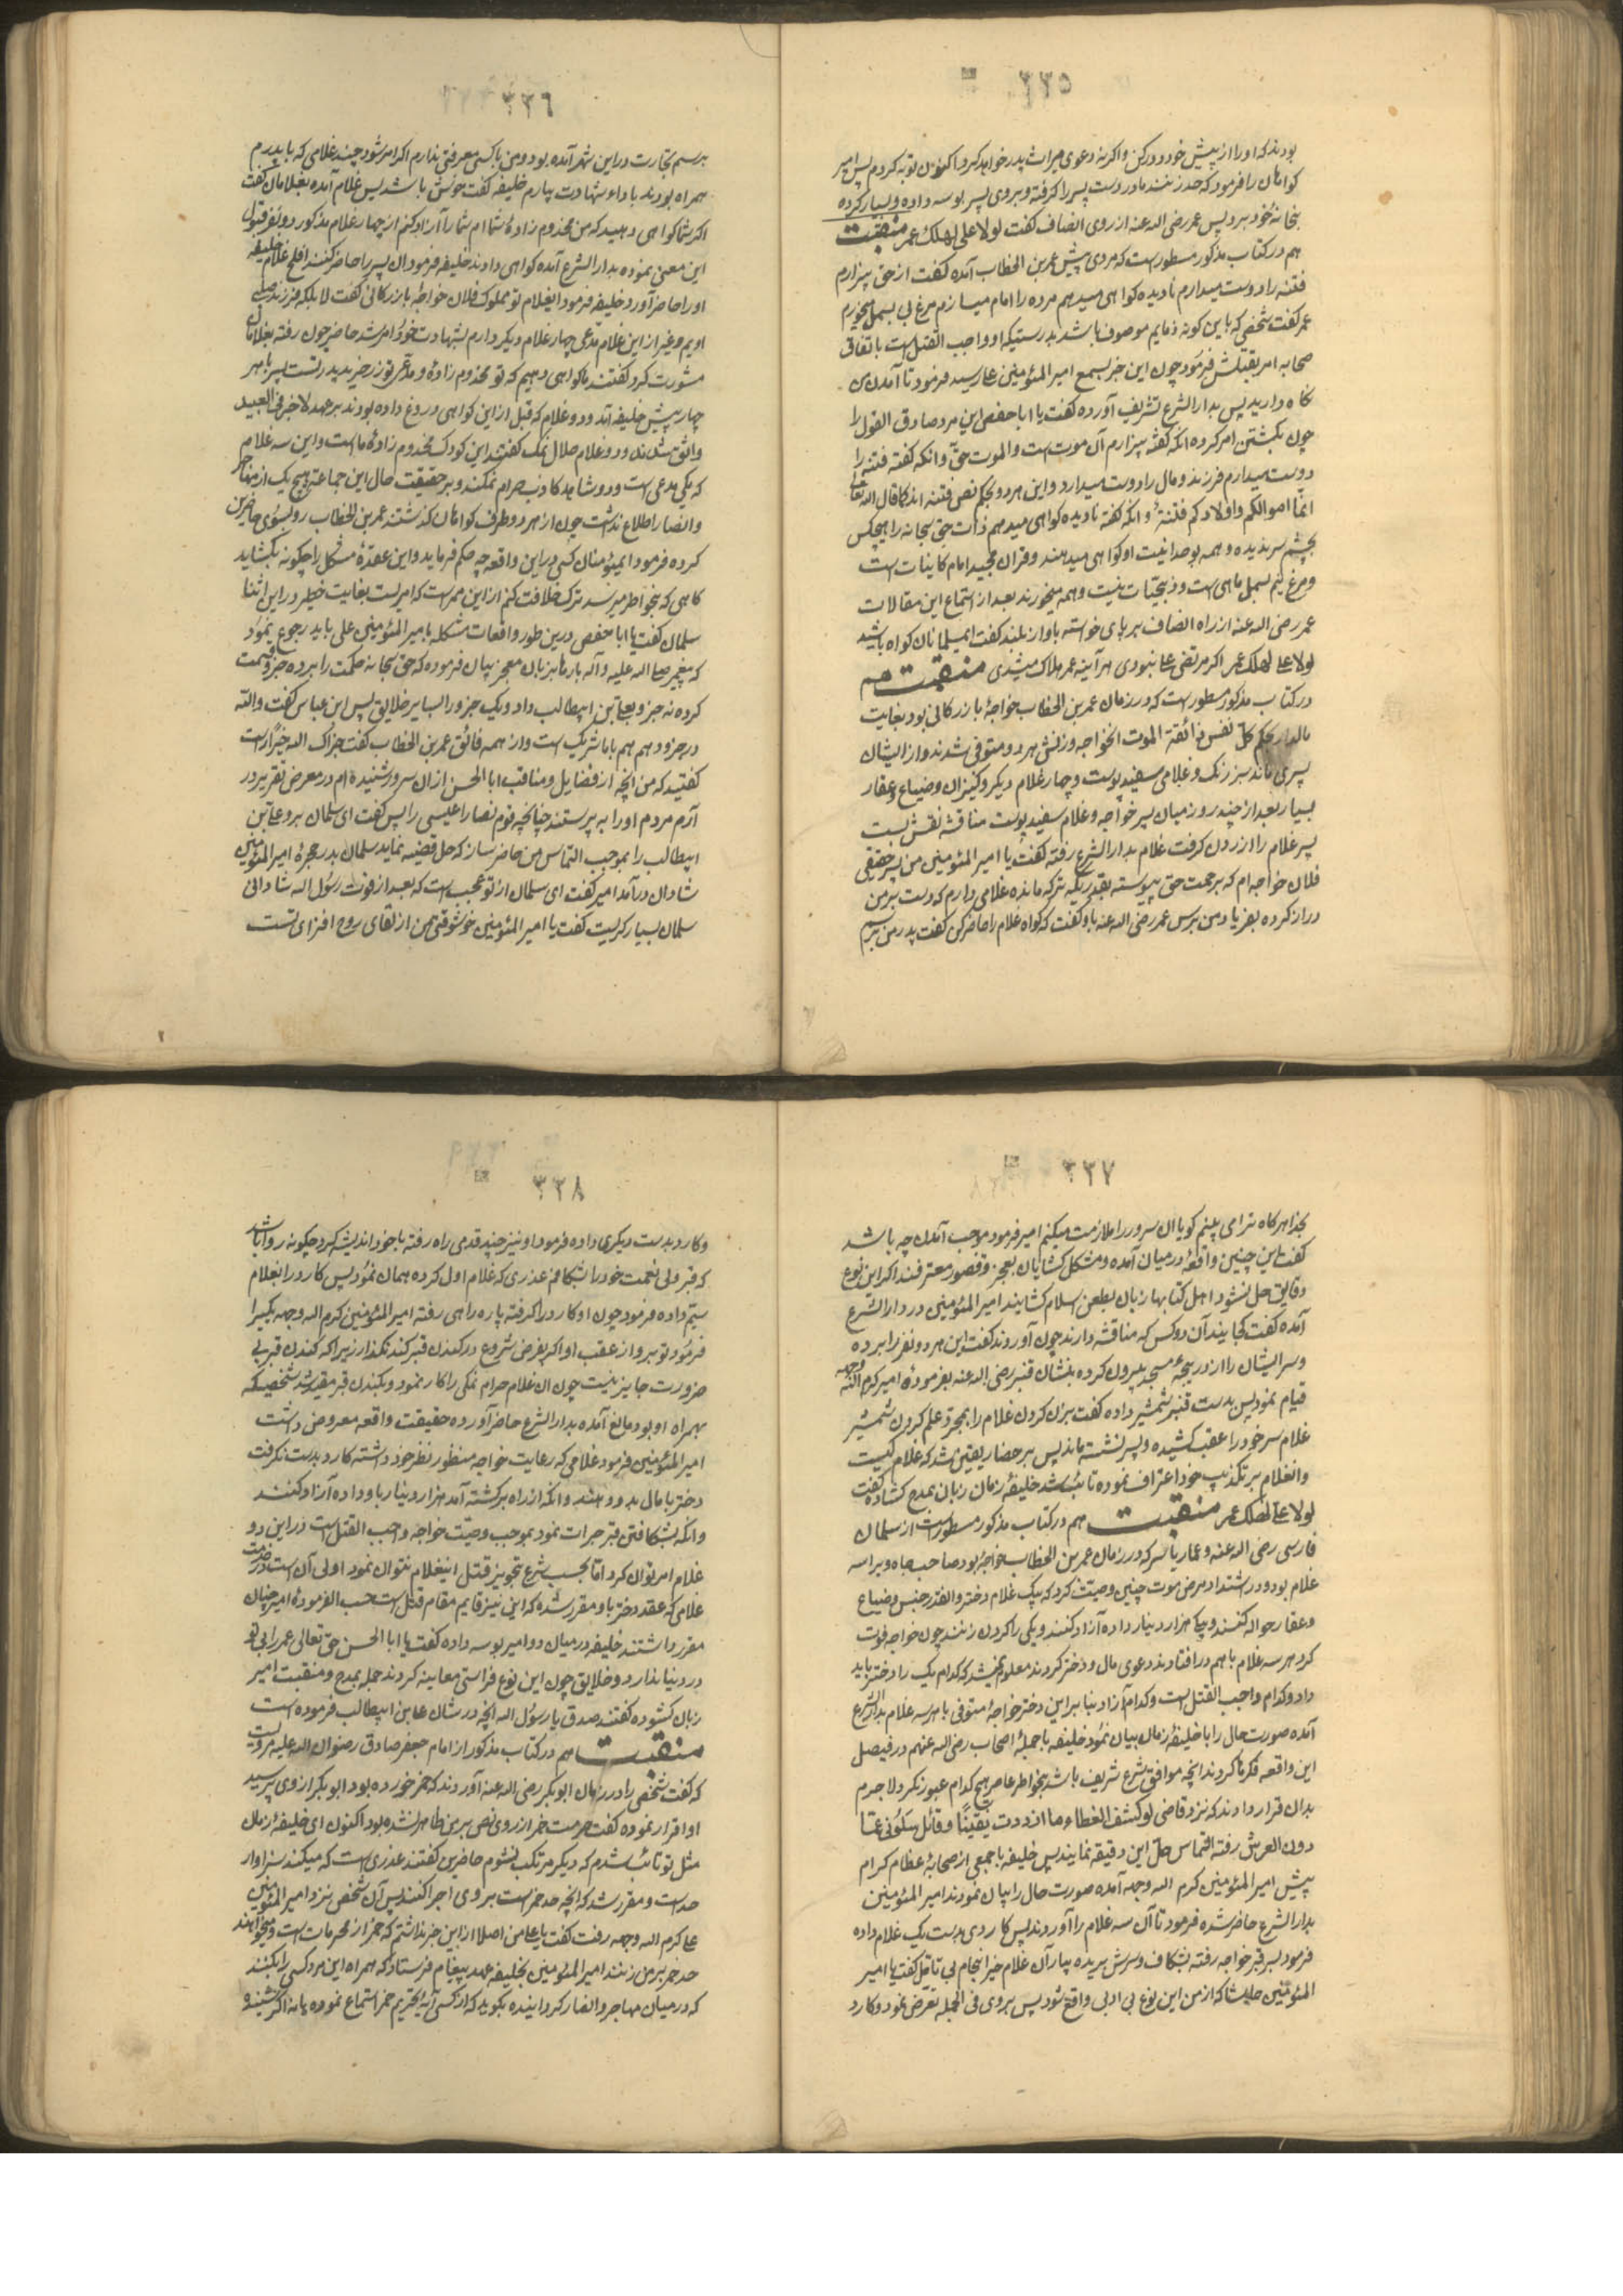 ٣٣٥
بودند که او را از پیش خود دور کن و اکر نه دعوی میراث پدر خواهد کرد اکنون توبه کردم پس امیر
کواهان را فرمود که حد زنند مادر دست پسر را کرفته و بر روی پسر بوسه داده و بسیار کرده
بخانه خود برد پس عمر رضی الله عنه از روی انصاف کفت لولا علی لهلک عمر منقبت
هم در کتاب مذکور مسطور است که مردی پیش عمر بن الخطاب آمده کفت از حق بیزارم
فتنه را دوست میدارم نادیده کواهی میدهم مرده را امام میسازم مرغ بی بسمل میخورم
عمر کفت شخصی که باین کونه ذمایم موصوف باشد بدرستیکه او واجب القتل است باتفاق
صحابه امر بقتلش فرمود چون این خبر بسمع امیر المئومنین علی رسید فرمود تا آمدن من
نکاه دارید پس بدار الشرع تشریف آورده کفت یا ابا حفص این مرد صادق القول را
چون بکشتن امر کرده انکه کفته بیزارم آن موت است والموت حق و انکه کفته فتنه را
دوست میدارم فرزند و مال را دوست میدارد و این هر دو بحکم نص فتنه اند کما قال الله تعالی
انما اموالکم و اولادکم فتنة و انکه کفته نادیده کواهی میدهم ذات حق سبحانه را هیچکس
بچشم سر ندیده و همه بوحدانیت او کواهی میدهند و قران مجید امام کاینات است
و مرغ نیم بسمل ماهی است و ذبحیات نیست و همه میخورند بعد از استماع این مقالات
عمر رضی الله عنه از راه انصاف بر پای خواسته باواز بلند کفت ایمسلمانان کواه باشید
لولا علی لهلک عمر اکر مرتضی علی نبودی هر آینه عمر هلاک میشدی منقبت هم
در کتاب مذکور مسطور است که در زمان عمر بن الخطاب خواجهٔ بازرکانی بود بغایت
مالدار بحکم کل نفس ذائقة الموت انخواجه و زنش هر دو متوفی شدند و از ایشان
پسری ماند سبز رنک و غلامی سفید پوست و چهار غلام دیکر و کنیزان و ضیاع و عقار
بسیار بعد از چند روز میان پسر خواجه و غلام سفید پوست مناقشه نقش بست
پسر غلام را از زدن کرفت غلام بدار الشرع رفته کفت یا امیر المئومنین من پسر حقیقی
فلان خواجه ام که برحمت حق پیوسته بقدریکه ترکه مانده غلامی دارم که دست بر من
دراز کرده بفریاد من برس عمر رضی الله عنه باو کفت که کواه غلام را حاضر کن کفت پدر من برسم
٣٣٦
برسم تجارت دراین شهر آمده بود و من با کسی معرفتی ندارم اکر امر شود چند غلامی که با پدرم
همراه بودند باداء شهادت بیارم خلیفه کفت خوش باشد پس غلام آمده بغلامان کفت
اکر شما کواهی دهید که من مخدوم زادهٔ شما ام شما را آزاد کنم از چهار غلام مذکور دو نفر قبول
این معنی نموده بدار الشرع آمده کواهی دادند خلیفه فرمود ان پسر را حاضر کنند افلح غلام خلیفه
او را حاضر آورد خلیفه فرمود ایغلام تو مملوک فلان خواجهٔ بازرکانی کفت لا بلکه فرزند صلبی
اویم و غیر از این غلام مدعی چهار غلام دیکر دارم بشهادت خود امر شد حاضر چون رفته بغلامان
مشورت کرد کفتند ما کواهی دهیم که تو مخدوم زادهٔ و مدعی تو زر خرید پدر تست پسر با هر
چهار پیش خلیفه آمد دو غلام که قبل از این کواهی دروغ داده بودند بر عهد لا خیر فی العبید
واثق شدند و دو غلام حلال نمک کفتند این کودک مخدوم زادهٔ ما است و این سه غلام
که یکی مدعی است و دو شاهد کاذب حرام نمکند و بر حقیقت حال این جماعة هیچ یک از مهاجر
وانصار اطلاع نداشت چون از هر دو طرف کواهان کذشتند عمر بن الخطاب رو بسوی حاضرین
کرده فرمود ایمئومنان کسی در این واقعه چه حکم فرماید و این عقدهٔ مشکل را چکونه بکشاید
کاهی که بخواطر میرسد ترک خلافت کنم از این ممر است که امریست بغایت خطیر در این اثنا
سلمان کفت یا ابا حفص درین طور واقعات مشکله بامیر المئومنین علی باید رجوع نمود
که پیغمبر صلی الله علیه و آله بارها بزبان معجز بیان فرموده که حق سبحانه حکمت را بر ده جزو قسمت
کرده نه جزو بعلی بن ابیطالب داد و یک جزو را بسایر خلایق پس ابن عباس کفت والله
در جزو دهم هم با ما شریک است و از همه فائق عمر بن الخطاب کفت جزاک الله خیرا راست
کفتید که من انچه از فضایل و مناقب ابا الحسن ازان سرور شنیده ام در معرض تقریر در
آرم مردم او را به پرستند چنانچه قوم نصارا عیسی را پس کفت ای سلمان برو علی بن
ابیطالب را بموجب التماس من حاضر ساز که حل قضیه نماید سلمان بدر حجرهٔ امیر المئومنین
شادان درآمد امیر کفت ای سلمان از تو عجب است که بعد از فوت رسول الله شادانی
سلمان بسیار کریست کفت یا امیر المئومنین خوشوقتی من از لقای روح افزای تست
٣٣٧
بخدا هر کاه ترا می بینم کویا ان سرور را ملازمت میکنم امیر فرمود موجب آمدن چه باشد
کفت این چنین واقعهٔ در میان آمده و مشکل کشایان بعجز و قصور معترفند اکر این نوع
دقایق حل نشود اهل کتابها زبان بطعن اسلام کشایند امیر المئومنین در دار الشرع
آمده کفت کجایند آن دو کس که مناقشه دارند چون آوردند کفت این هر دو نفر را برده
و سر ایشان را از دریچهٔ مسجد بیرون کرده بنشان قنبر رضی الله عنه بفرمودهٔ امیر کرم الله وجهه
قیام نمود پس بدست قنبر شمشیر داده کفت بزن کردن غلام را بمجرد علم کردن شمشیر
غلام سر خود را عقب کشیده و پسر نشسته ماند پس بر حضار یقین شد که غلام کیست
وانغلام بر تکذیب خود اعتراف نموده تائب شد خلیفهٔ زمان زبان بمدح کشاده کفت
لولا علی لهلک عمر منقبت هم در کتاب مذکور مسطور است از سلمان
فارسی رضی الله عنه و عمار یاسر که در زمان عمر بن الخطاب خواجهٔ بود صاحب جاه و برا سه
غلام بود و در اشتداد مرض موت چنین وصیت کرد که بیک غلام دختر والقدر جنس و ضیاع
و عقار حواله کنند و بیکی هزار دینار داده آزاد کنند و یکی را کردن زنند چون خواجه فوت
کرد هر سه غلام با هم در افتادند دعوی مال و دختر کردند معلوم نمیشد که کدام یک را دختر باید
داد و کدام واجب القتل است و کدام آزاد بنا بر این دختر خواجهٔ متوفی با هر سه غلام بدار الشرع
آمده صورت حال را با خلیفهٔ زمان بیان نمود خلیفه با جملهٔ اصحاب رضی الله عنهم در فیصل
این واقعه فکرها کردند انچه موافق شرع شریف باشد بخواطر عاصر هیچ کدام عبور نکرد لا جرم
بدان قرار دادند که نزد قاضی لو کشف الغطاء ما ازددت یقینا و قائل سلونی عما
دون العرش رفته التماس حل این دقیقه نمایند پس خلیفه با جمعی از صحابهٔ عظام کرام
پیش امیر المئومنین کرم الله وجهه آمده صورت حال را بیان نمودند امیر المئومنین
بدار الشرع حاضر شده فرمود تا آن سه غلام را آوردند پس کاردی بدست یک غلام داده
فرمود بر قبر خواجه رفته بشکاف و سرش بریده بیار آن غلام خیر انجام بی تأمل کفت یا امیر
المئومنین حاشا که از من این نوع بی ادبی واقع شود پس بر وی فی الجمله تعرض نمود و کارد
٣٣٨
و کارد بدست دیکری داده فرمود او نیز چند قدمی راه رفته با خود اندیشه کرد چکونه روا باشد
که قبر ولی نعمت خود را بشکافم عذری که غلام اول کرده همان نمود پس کارد را بغلام
سیم داده فرمود چون او کارد را کرفته پاره راهی رفته امیر المئومنین کرم الله وجهه یکی را
فرمود تو برو از عقب او اکر بفرض شروع در کندن قبر کند نکذار زیرا که کندن قبر بی
ضرورت جایز نیست چون ان غلام حرام نمکی را کار نمود و بکندن قبر مقید شد شخصیکه
بهمراه او بود مانع آمده بدار الشرع حاضر آورده حقیقت واقعه معروض داشت
امیر المئومنین فرمود غلامی که رعایت خواجه منظور نظر خود داشته کارد بدست نکرفت
دختر با مال بدو دهند وانکه از راه برکشته آمد هزار دینار باو داده آزاد کنند
وانکه بشکافتن قبر جرات نمود بموجب وصیت خواجه واجب القتل است در این دو
غلام امر توان کرد اما بحسب شرع تجویز قتل اینغلام نتوان نمود اولی آن است در خدمت
غلامی که عقد دختر باو مقرر شده که این نیز قایم مقام قتل است حسب الفرمودهٔ امیر چنان
مقرر داشتند خلیفه در میان دو امیر بوسه داده کفت یا ابا الحسن حق تعالی عمر را بی تو
در دنیا ندارد و خلایق چون این نوع فراستی معاینه کردند جمله بمدح و منقبت امیر
زبان کشوده کفتند صدق یا رسول الله انچه در شان علی بن ابیطالب فرموده است
منقبت هم در کتاب مذکور از امام جعفر صادق رضوان الله علیه مرویست
که کفت شخصی را در زمان ابو بکر رضی الله عنه آوردند که خمر خورده بود ابو بکر از وی پرسید
او اقرار نموده کفت حرمت خمر از روی نص بر من ظاهر نشده بود اکنون ای خلیفهٔ زمان
مثل تو تائب شدم که دیکر مرتکب نشوم حاضرین کفتند عذری است که میکند سزاوار
حد است و مقرر شد که انچه حد خمر است بر وی اجرا کنند پس آن شخص نزد امیر المئومنین
علی کرم الله وجهه رفت کفت یا علی من اصلا از این خبر نداشتم که خمر از محرمات است و میخواهند
حد خمر بر من زنند امیر المئومنین بخلیفه عهد پیغام فرستاد که همراه این مرد کسی را بکنند
که در میان مهاجر و انصار کردانیده بکوید که از کسی آیهٔ تحریم خمر استماع نموده یا نه اکر شنیده